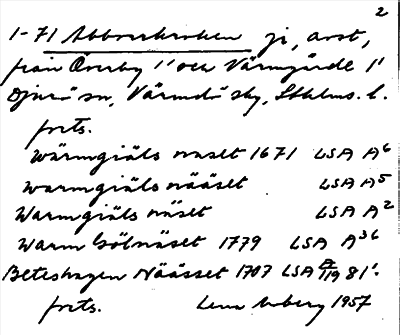 2
1-71 Abborrkroken ji, avst,
från Överby 1' och Värmgärde 1'
Djurö sn, Värmdö skg, Sthlms. l.
forts.
Wärmgiäls naset 1671 LSA A6
warmgiäls nääset LSA A5
Warmgiäls näset LSA A2
Warm Gölnäset 1779 LSA A36
Beteshagen Näässet 1707 LSA A/119 81'.
forts. Lena 1957